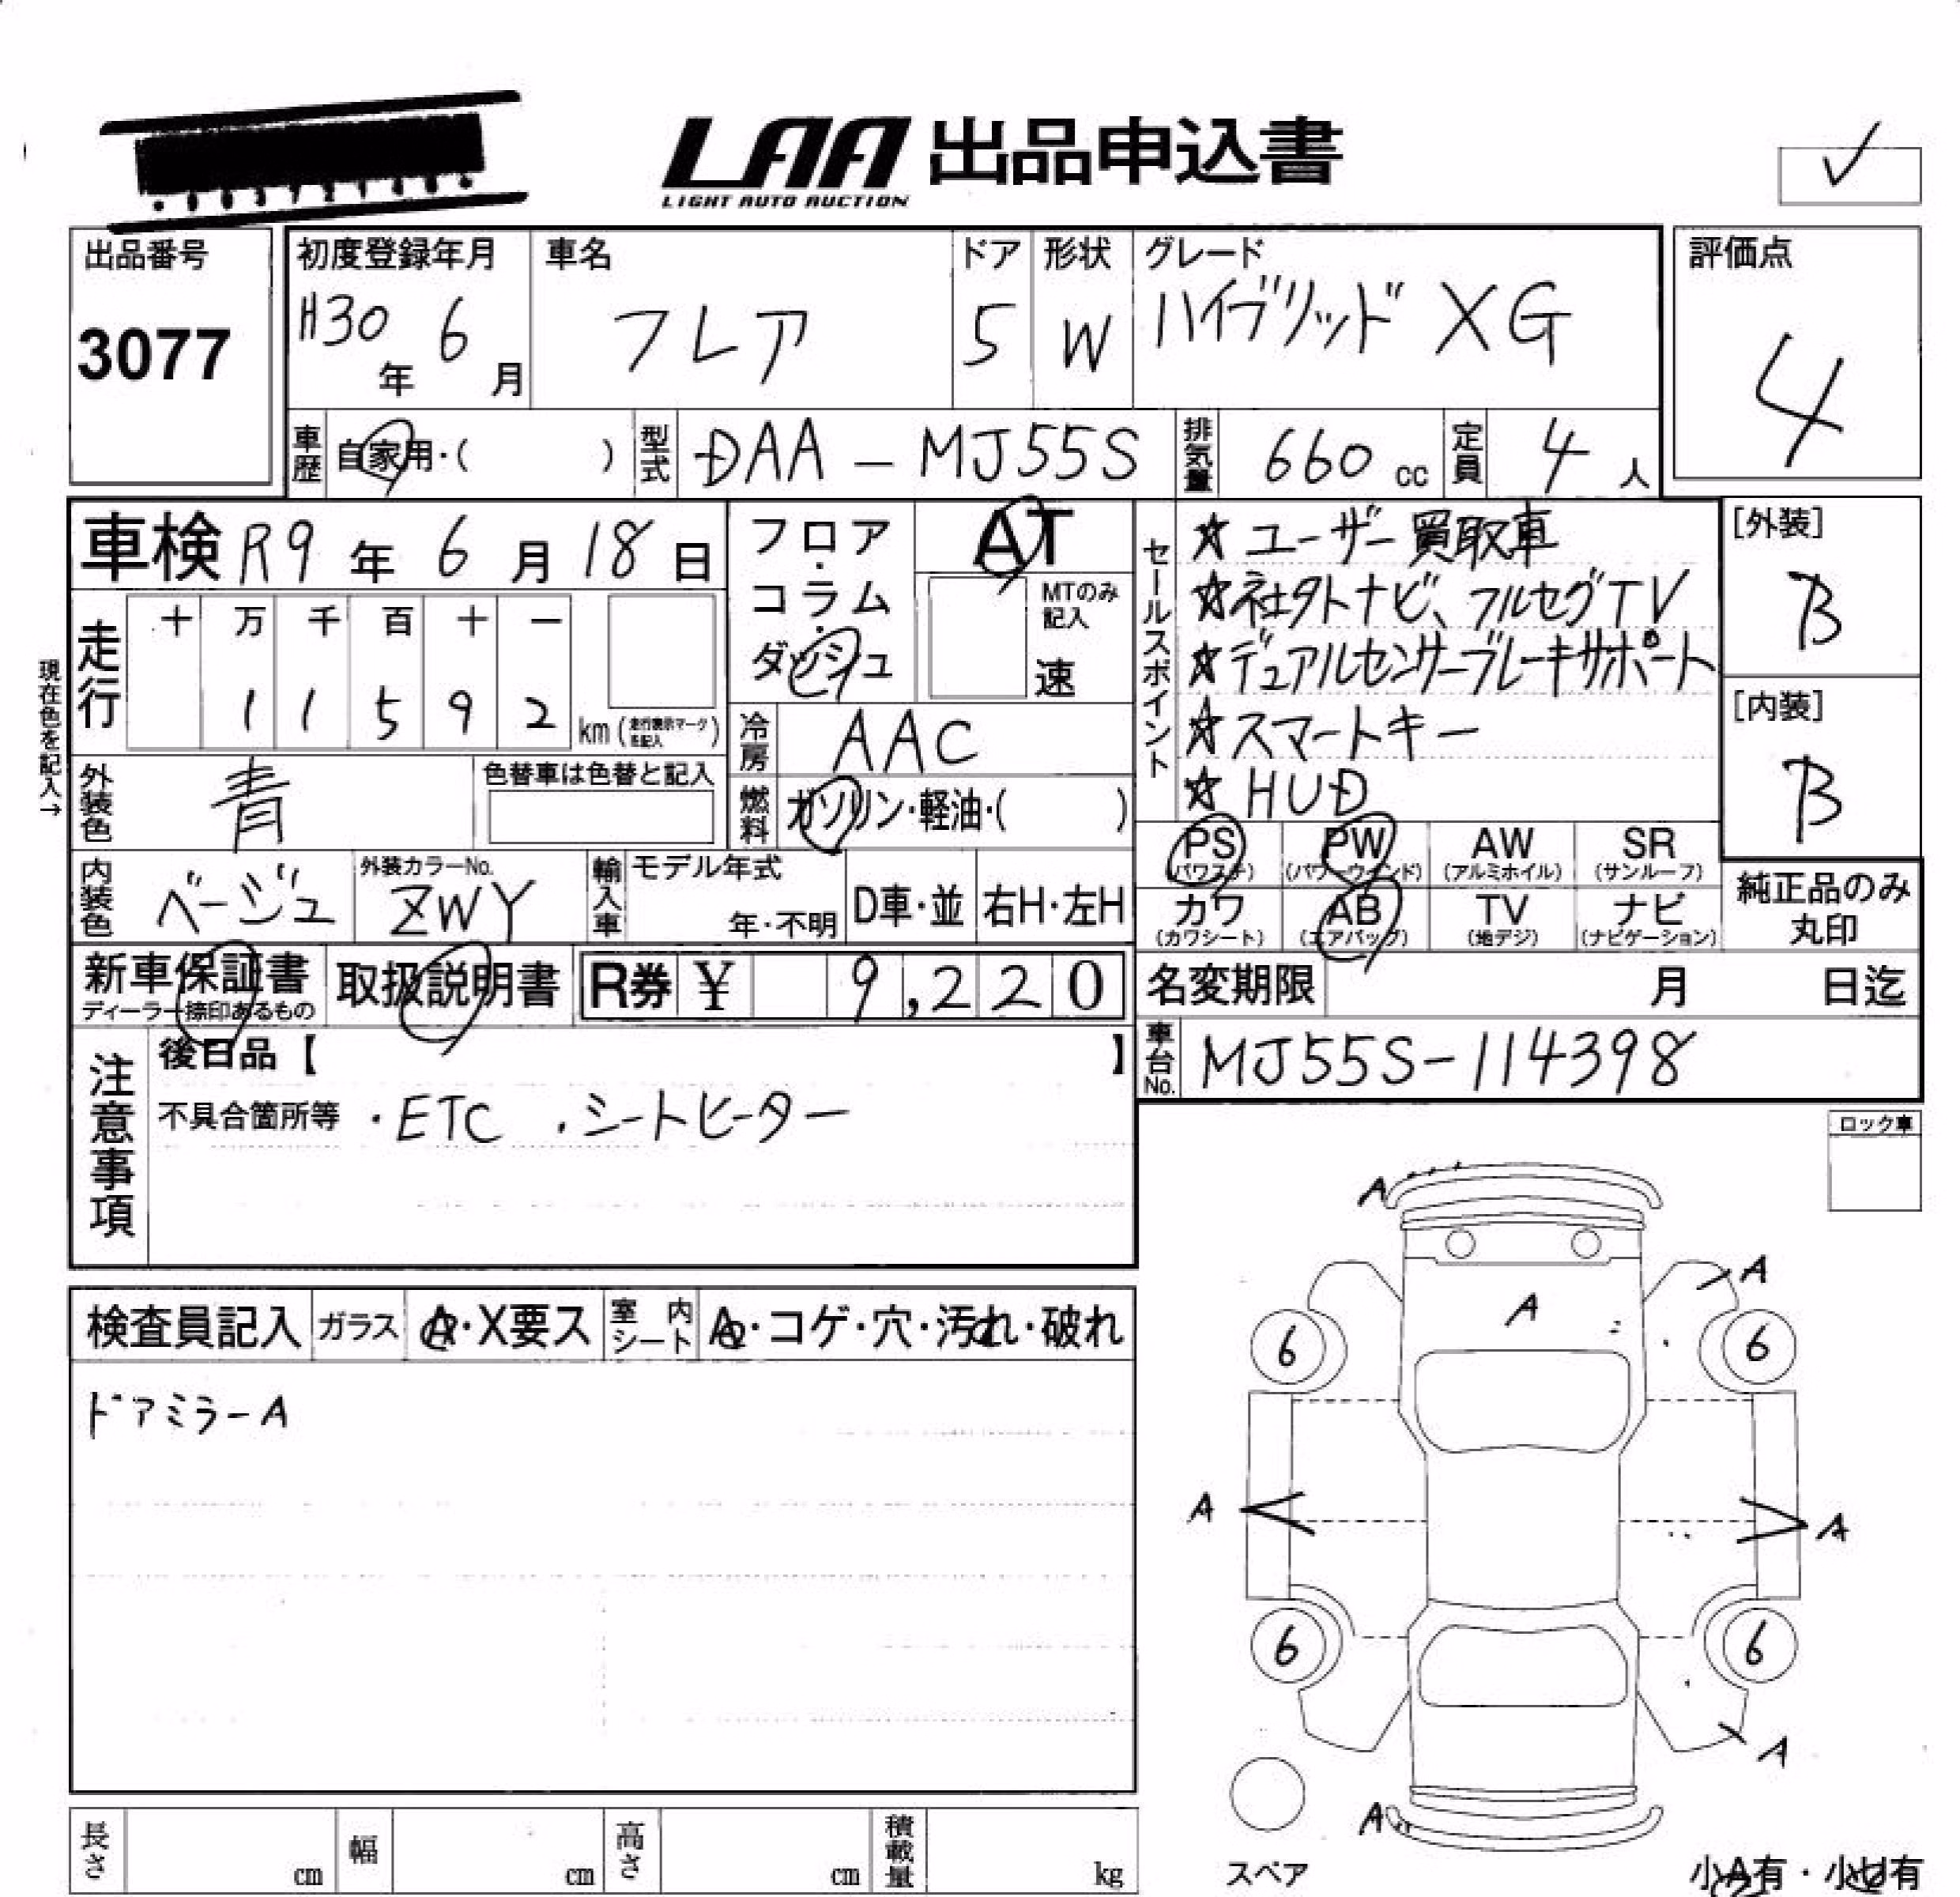 LAA 出品申込書
LIGHT AUTO AUCTION
✓
出品番号
3077
初度登録年月
H30年 6月
車名
フレア
ドア
5
形状
W
グレード
ハイブリッド XG
評価点
4
車歴 自家用・( )
型式 DAA-MJ55S
排気量 660 cc
定員 4人
車検 R9年 6月 18日
走行
十 万 千 百 十 一
1 1 5 9 2 km (走行表示マークを記入)
現在色を記入→
外装色 青
色替車は色替と記入
内装色 ベージュ
外装カラーNo.
ZWY
フロア・コラム・ダッシュ
AT
MTのみ記入
速
冷房 AAC
燃料 ガソリン・軽油・( )
輸入車 モデル年式
年・不明
D車・並
右H・左H
セールスポイント
☆ユーザー買取車
☆社外ナビ、フルセグTV
☆デュアルセンサーブレーキサポート
☆スマートキー
☆HUD
[外装]
B
[内装]
B
PS (パワステ)
PW (パワーウインド)
AW (アルミホイル)
SR (サンルーフ)
カワ (カワシート)
AB (エアバッグ)
TV (地デジ)
ナビ (ナビゲーション)
純正品のみ丸印
新車保証書
ディーラー捺印あるもの
取扱説明書
R券 ¥ 9,220
名変期限 月 日迄
車台No. MJ55S-114398
注意事項
後日品【 】
不具合箇所等 ・ETC ・シートヒーター
ロック車
検査員記入
ガラス A・X要ス
室内シート A・コゲ・穴・汚れ・破れ
ドアミラーA
A
A
A
6
6
A
A
6
6
A
A
スペア
小A有・小U有
長さ cm
幅 cm
高さ cm
積載量 kg